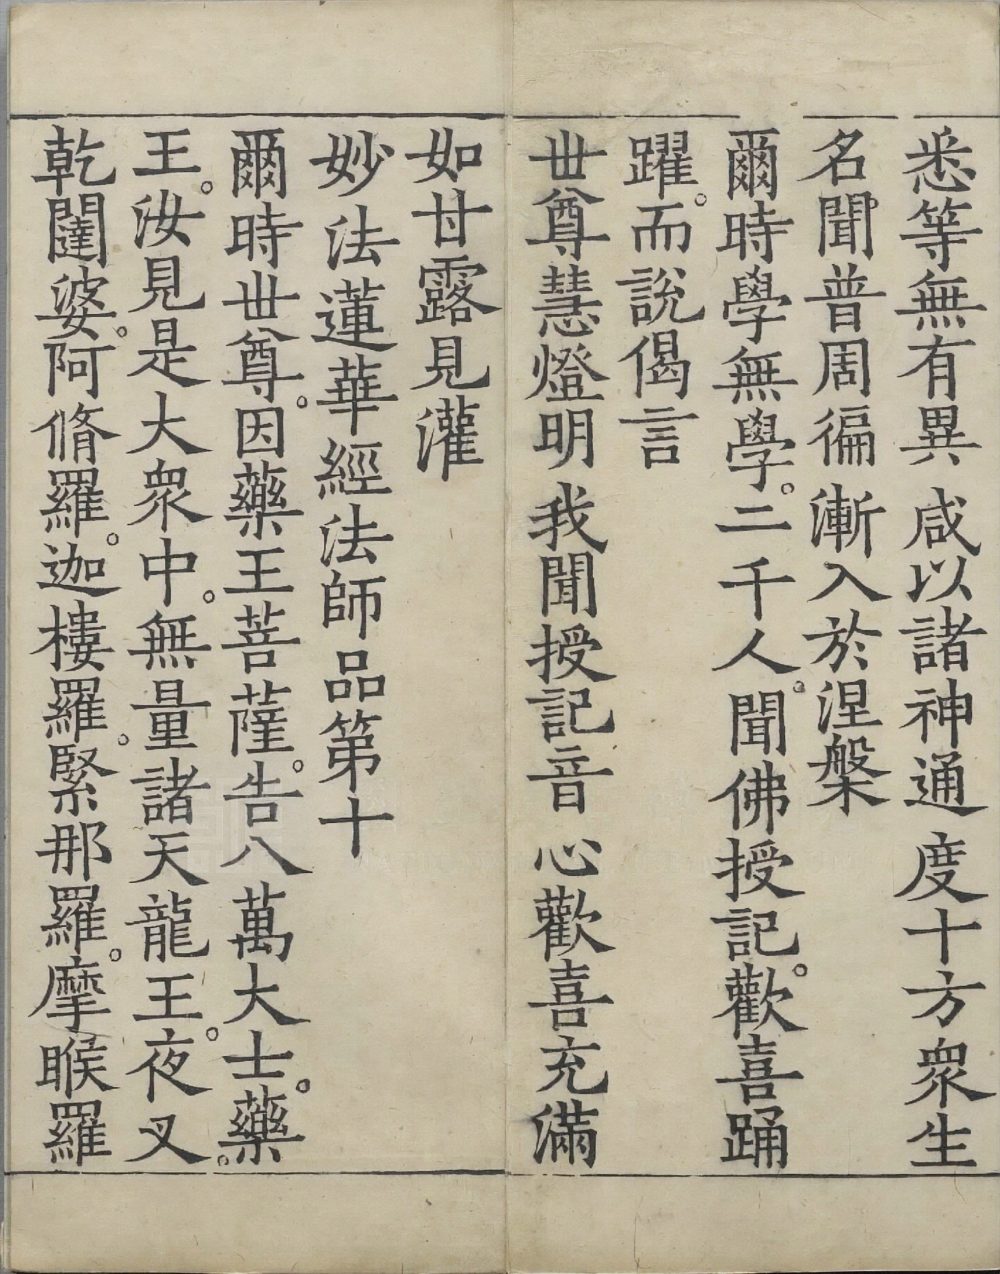 悉等無有異 咸以諸神通 度十方衆生
名聞普周徧 漸入於涅槃
爾時學無學。二千人。聞佛授記。歡喜踊
躍。而說偈言
世尊慧燈明 我聞授記音 心歡喜充滿
如甘露見灌
妙法蓮華經法師品第十
爾時世尊。因藥王菩薩。告八萬大士。藥
王。汝見是大衆中。無量諸天龍王。夜叉。
乾闥婆。阿脩羅。迦樓羅。緊那羅。摩睺羅